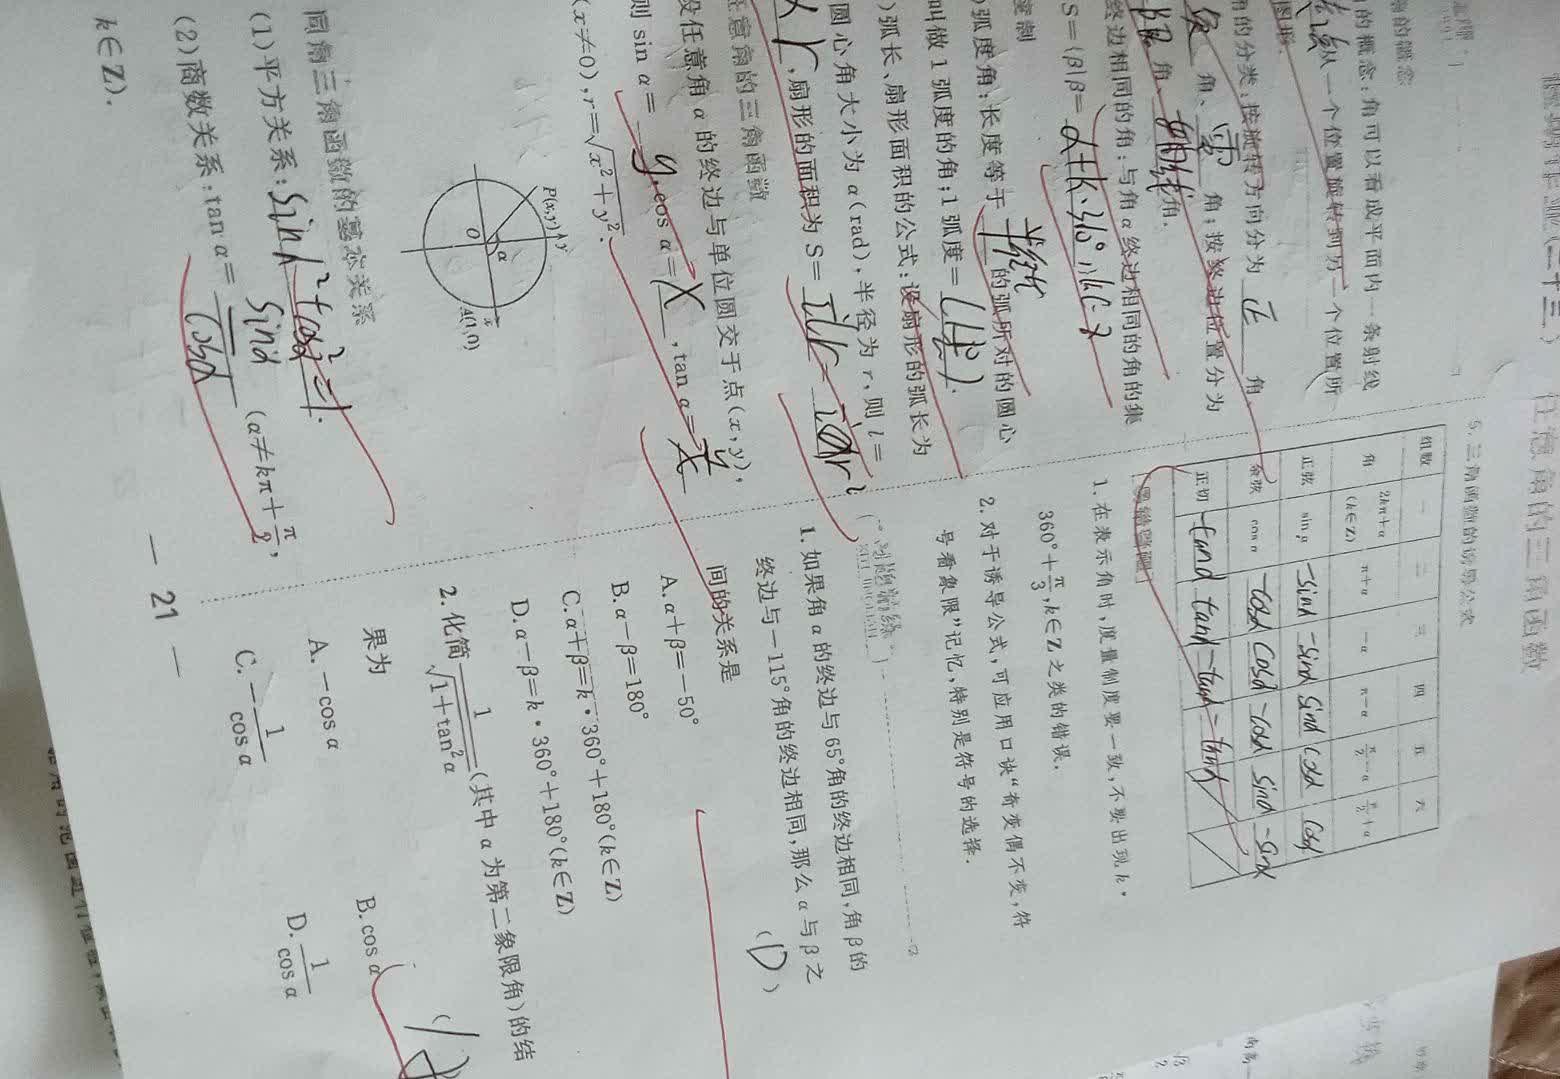 任意角的三角函数
角的概念
的概念:角可以看成平面内一条射线
从一个位置旋转到另一个位置所
图形.
角的分类:按旋转方向分为 正 角、
负 角、 零 角;按终边位置分为
角、 轴线 角.
终边相同的角:与角α终边相同的角的集
S={β|β= α+k·360°,k∈Z
弧度角:长度等于 半径 的弧所对的圆心
叫做1弧度的角;1弧度=
)弧长、扇形面积的公式:设扇形的弧长为
圆心角大小为α(rad),半径为r,则l=
αr ,扇形的面积为S= ½lr = ½αr²
任意角的三角函数
设任意角α的终边与单位圆交于点(x,y),
则 sin α= y ,cos α= x ,tan α= y/x
(x≠0),r=√(x²+y²).
P(x,y)
y
O
α
x
A(1,0)
同角三角函数的基本关系
(1)平方关系: sin²α+cos²α=1 .
(2)商数关系:tan α= sinα/cosα (α≠kπ+π/2,
k∈Z).
5.三角函数的诱导公式
组数 一 二 三 四 五 六
角 2kπ+α(k∈Z) π+α -α π-α π/2-α π/2+α
正弦 sin α -sinα -sinα sinα cosα cosα
余弦 cos α -cosα cosα -cosα sinα -sinα
正切 tanα tanα -tanα -tanα
易错提醒
1.在表示角时,度量制度要一致,不要出现k·
360°+π/3,k∈Z之类的错误.
2.对于诱导公式,可应用口诀“奇变偶不变,符
号看象限”记忆,特别是符号的选择.
1.如果角α的终边与65°角的终边相同,角β的
终边与-115°角的终边相同,那么α与β之
间的关系是 (D)
A.α+β=-50°
B.α-β=180°
C.α+β=k·360°+180°(k∈Z)
D.α-β=k·360°+180°(k∈Z)
2.化简 1/√(1+tan²α) (其中α为第二象限角)的结
果为 (
A.-cos α
B.cos α
C.-1/cos α
D.1/cos α
— 21 —